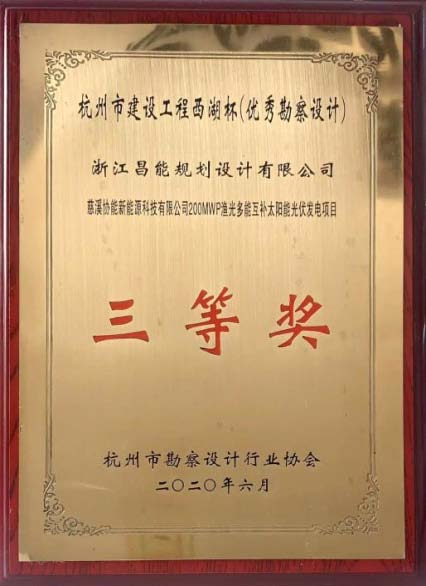 杭州市建设工程西湖杯(优秀勘察设计)
浙江昌能规划设计有限公司
慈溪协能新能源科技有限公司200MWP渔光多能互补太阳能光伏发电项目
三等奖
杭州市勘察设计行业协会
二〇二〇年六月